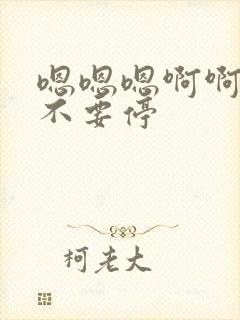 嗯嗯嗯啊啊
不要停
柯老大